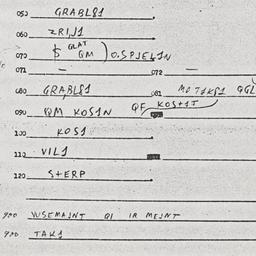 050 GRABL81
060 ZRIJ1
070 $ GLAT GM ) O.SPJEL1N
071 — 072 —
080 GRABL81 081
090 QM KOS1N QF KOS+1T
100 KOS1
110 VIL1
120 S+ERP
900 VUSEMA1NT Q1 IR ME1NT
920 TAK1